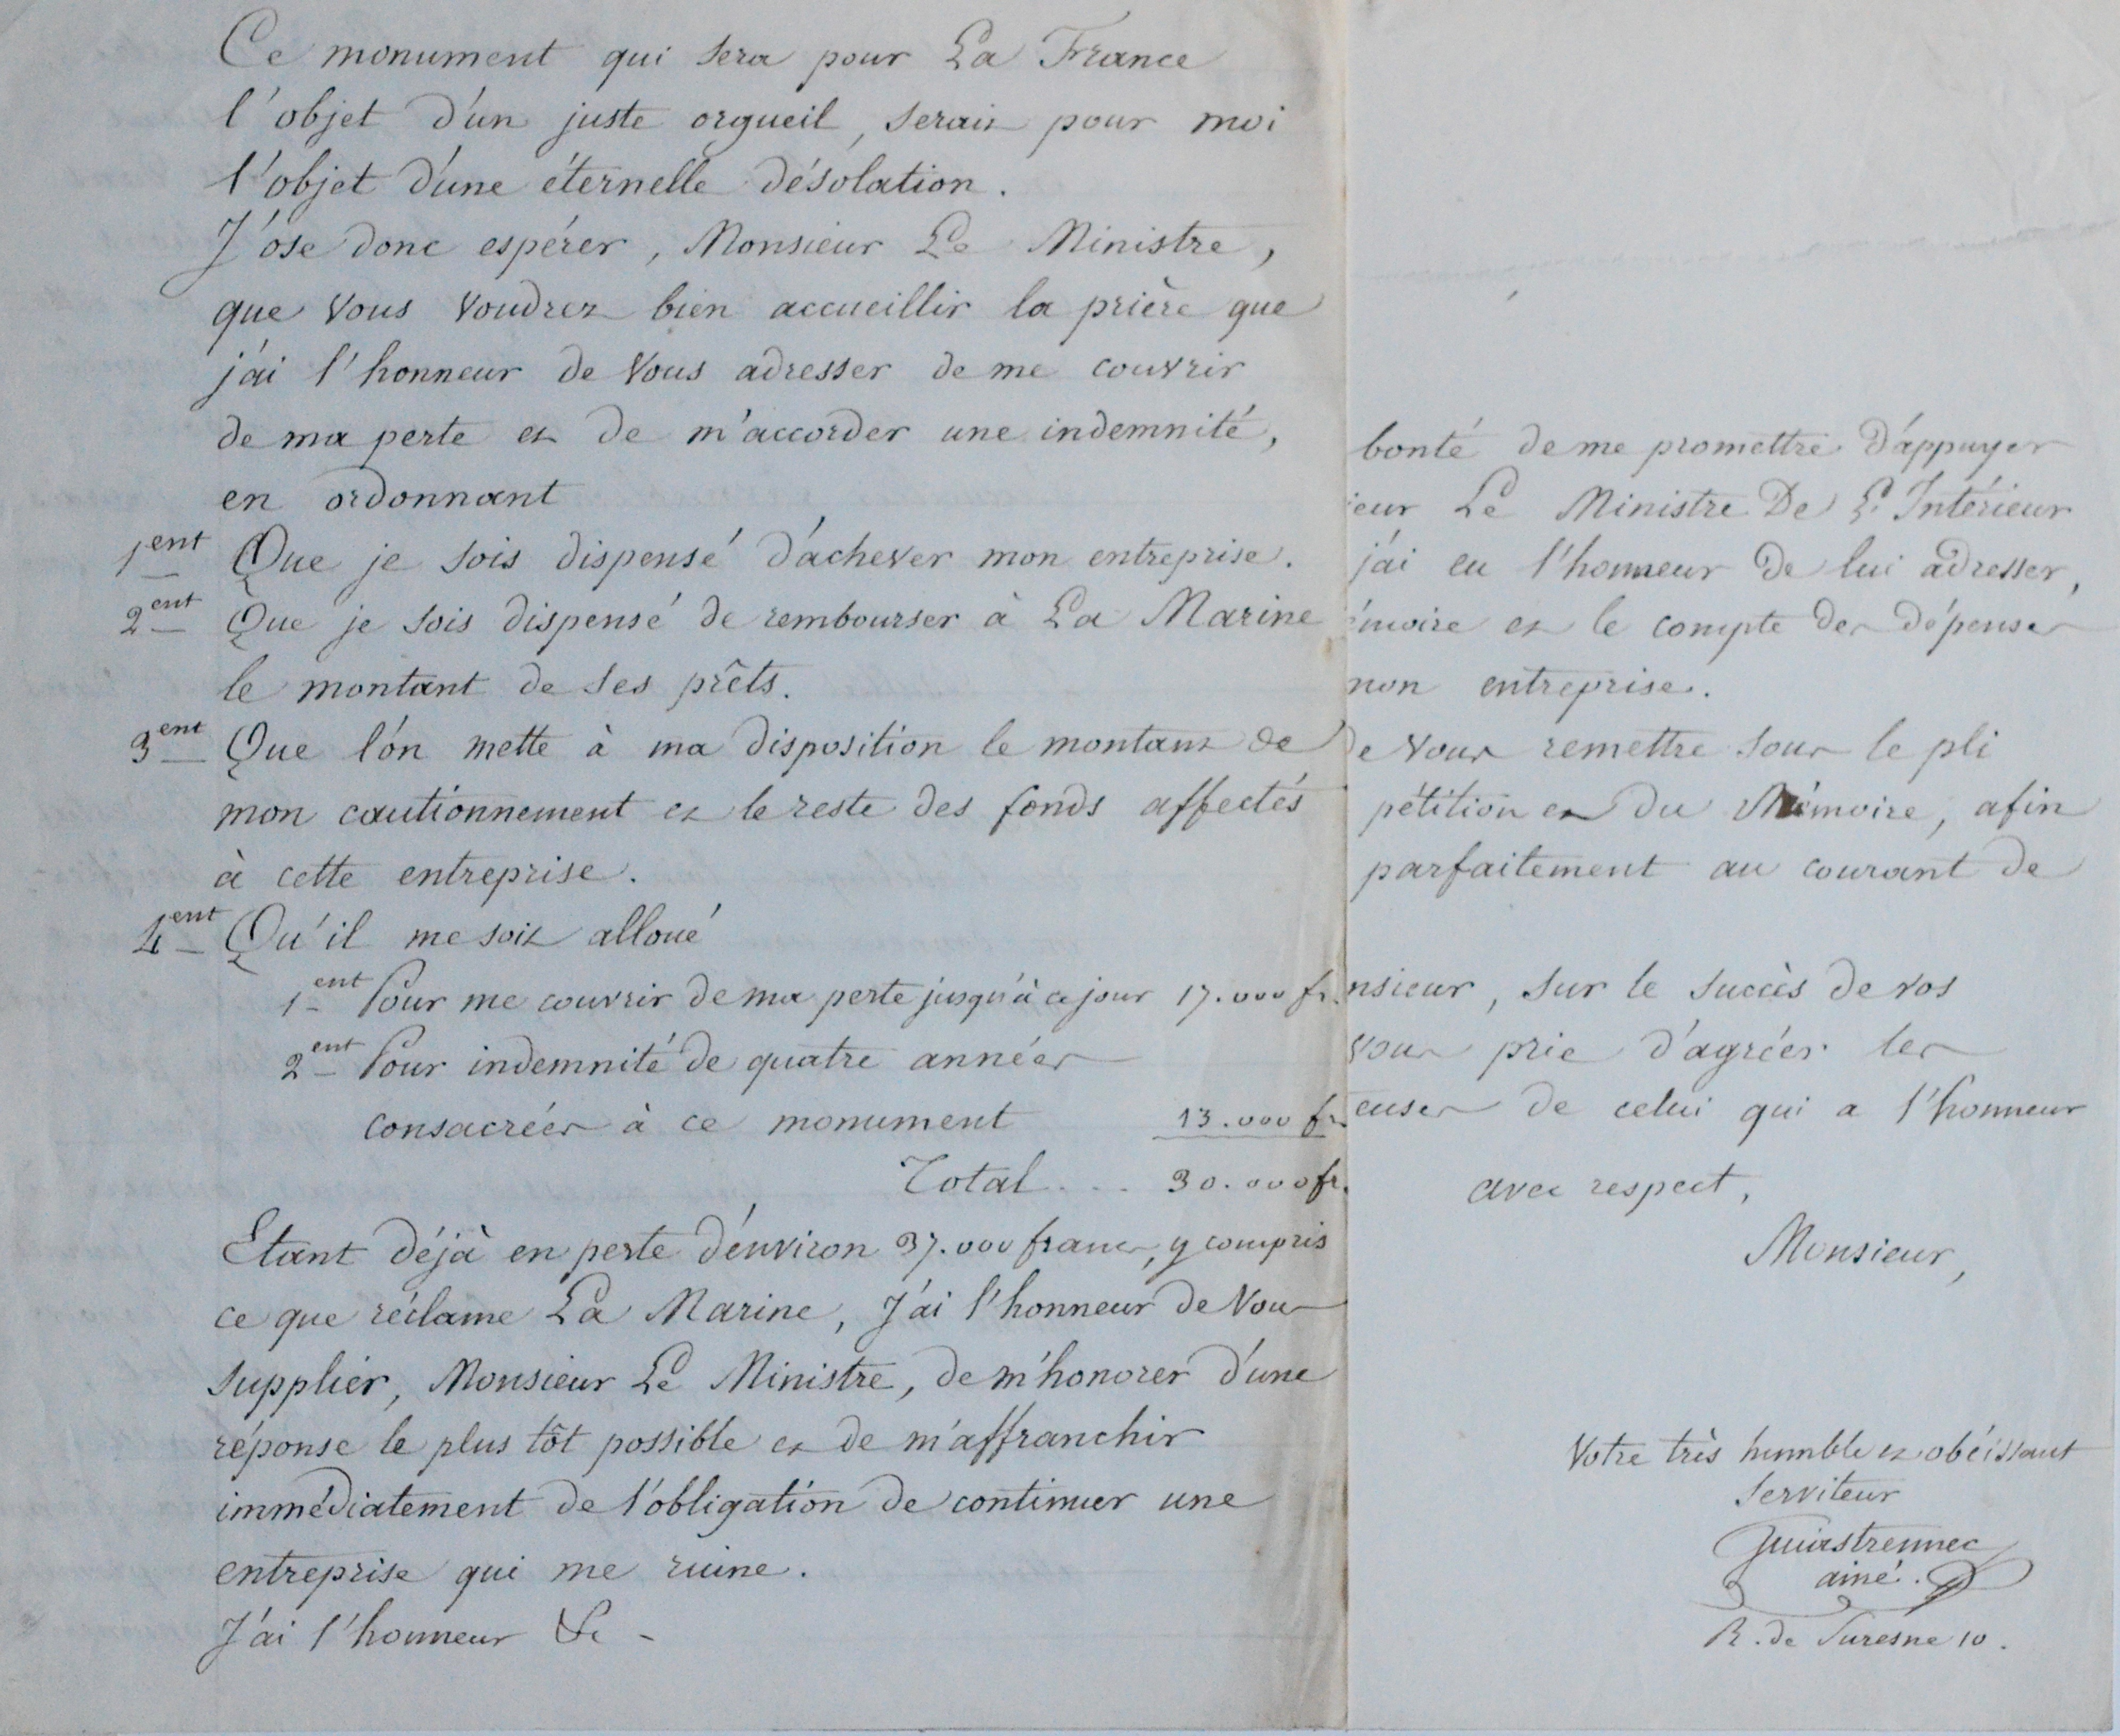 Ce monument qui sera pour La France
l'objet d'un juste orgueil, serait pour moi
l'objet d'une éternelle désolation.
J'ose donc espérer, Monsieur Le Ministre,
que Vous Voudrez bien accueillir la prière que
j'ai l'honneur de Vous adresser de me couvrir
de ma perte et de m'accorder une indemnité,
en ordonnant
1ent Que je sois dispensé d'achever mon entreprise.
2ent Que je sois dispensé de rembourser à La Marine
le montant de ses prêts.
3ent Que l'on mette à ma disposition le montant de
mon cautionnement et le reste des fonds affectés
à cette entreprise.
4ent Qu'il me soit alloué
1ent Pour me couvrir de ma perte jusqu'à ce jour 17.000 fr.
2ent Pour indemnité de quatre années
consacrées à ce monument 13.000 fr.
Total .... 30.000 fr.
Etant déjà en perte d'environ 37.000 francs, y compris
ce que réclame La Marine, J'ai l'honneur de Vous
supplier, Monsieur Le Ministre, de m'honorer d'une
réponse le plus tôt possible et de m'affranchir
immédiatement de l'obligation de continuer une
entreprise qui me ruine.
J'ai l'honneur &c -
bonté de me promettre d'appuyer
ieur Le Ministre De L'Intérieur
j'ai eu l'honneur de lui adresser,
émoire et le compte des dépenses
mon entreprise.
de Vous remettre sous le pli
pétition et du Mémoire, afin
parfaitement au courant de
nsieur, sur le succès de vos
vous prie d'agréer les
euses de celui qui a l'honneur
avec respect,
Monsieur,
Votre très humble et obéissant
Serviteur
ainé.
R. de Suresne 10.